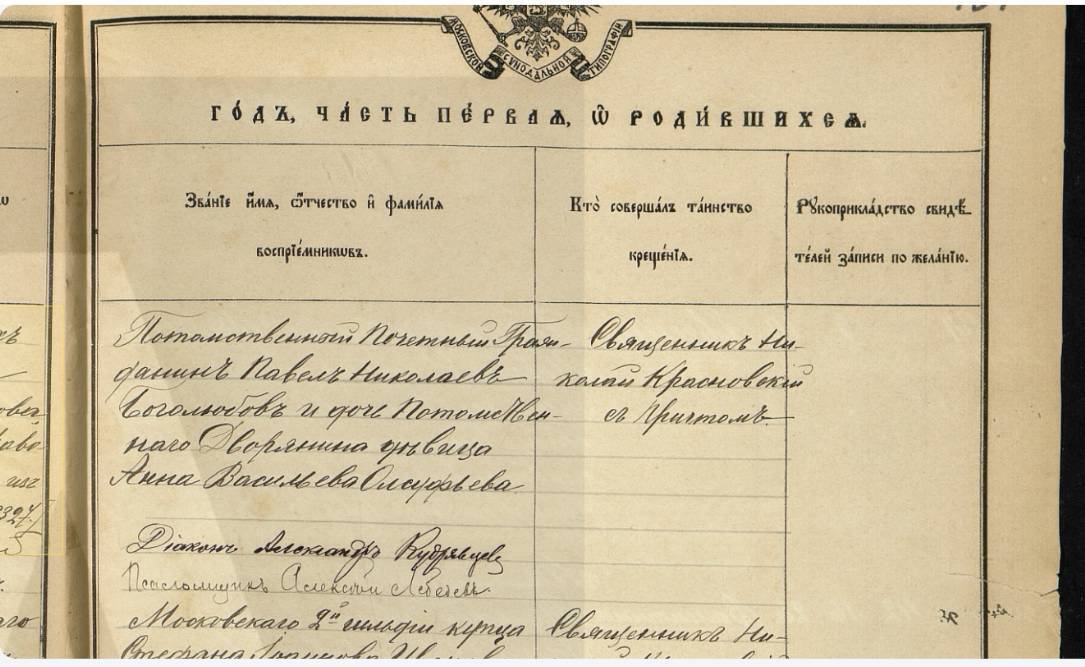 МОСКОВСКОЙ СУНОДАЛЬНОЙ ТИПОГРАФІИ
ГО́ДЪ, ЧА́СТЬ ПЕ́РВАѦ, Ѡ҆ РОДИ́ВШИХСѦ.
Зва́нїе и҆́мѧ, ѻ҆́тчество и҆ фами́лїѧ
воспрїе́мникѡвъ.
Кто̀ соверша́лъ та́инство
креще́нїѧ.
Рꙋкоприкла́дство свидѣ́-
те́лей за́писи по жела́нїю.
Потомственный Почетный Граж-
данинъ Павелъ Николаевъ
Боголюбовъ и дочь Потомствен-
наго Дворянина дѣвица
Анна Васильева Олсуфьева
Священникъ Ни-
колай Красновскій
съ Причтомъ
Діаконъ Александръ Кудрявцевъ
Псаломщикъ Алексій Лебедевъ.
Московскаго 2й гильдіи купца
Священникъ Ни-
Стефана